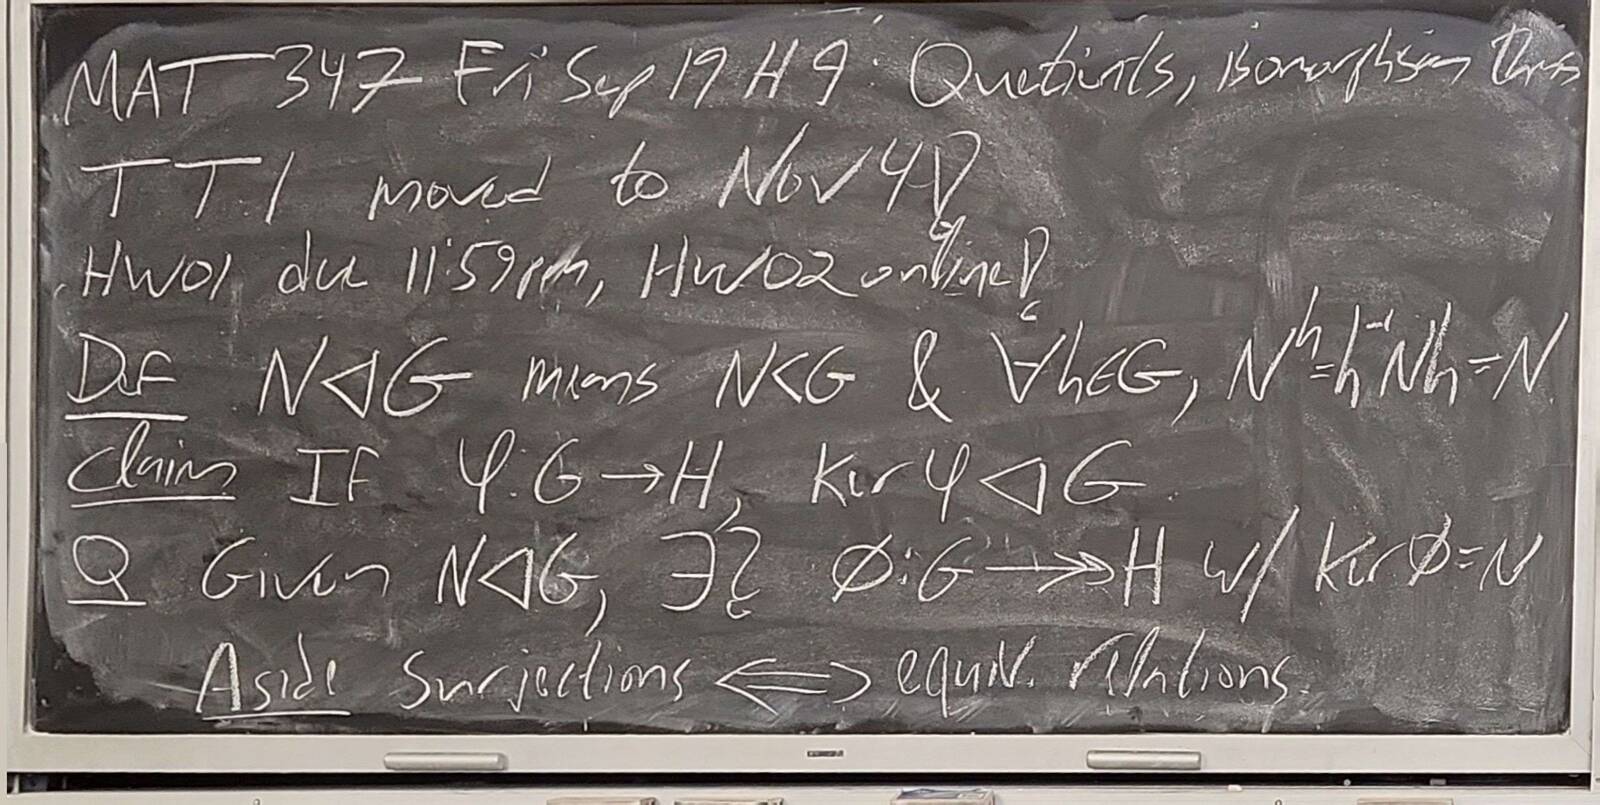 MAT 347 Fri Sep 19 H9: Quotients, isomorphism thms
TT1 moved to Nov 4!
HW01 due 11:59pm, HW02 online!
Def N◁G means N<G & ∀h∈G, Nʰ=h⁻¹Nh=N.
Claim If φ:G→H, ker φ ◁ G.
Q Given N◁G, ∃? ∅:G↠H w/ ker ∅=N
Aside Surjections ⟺ equiv. relations.